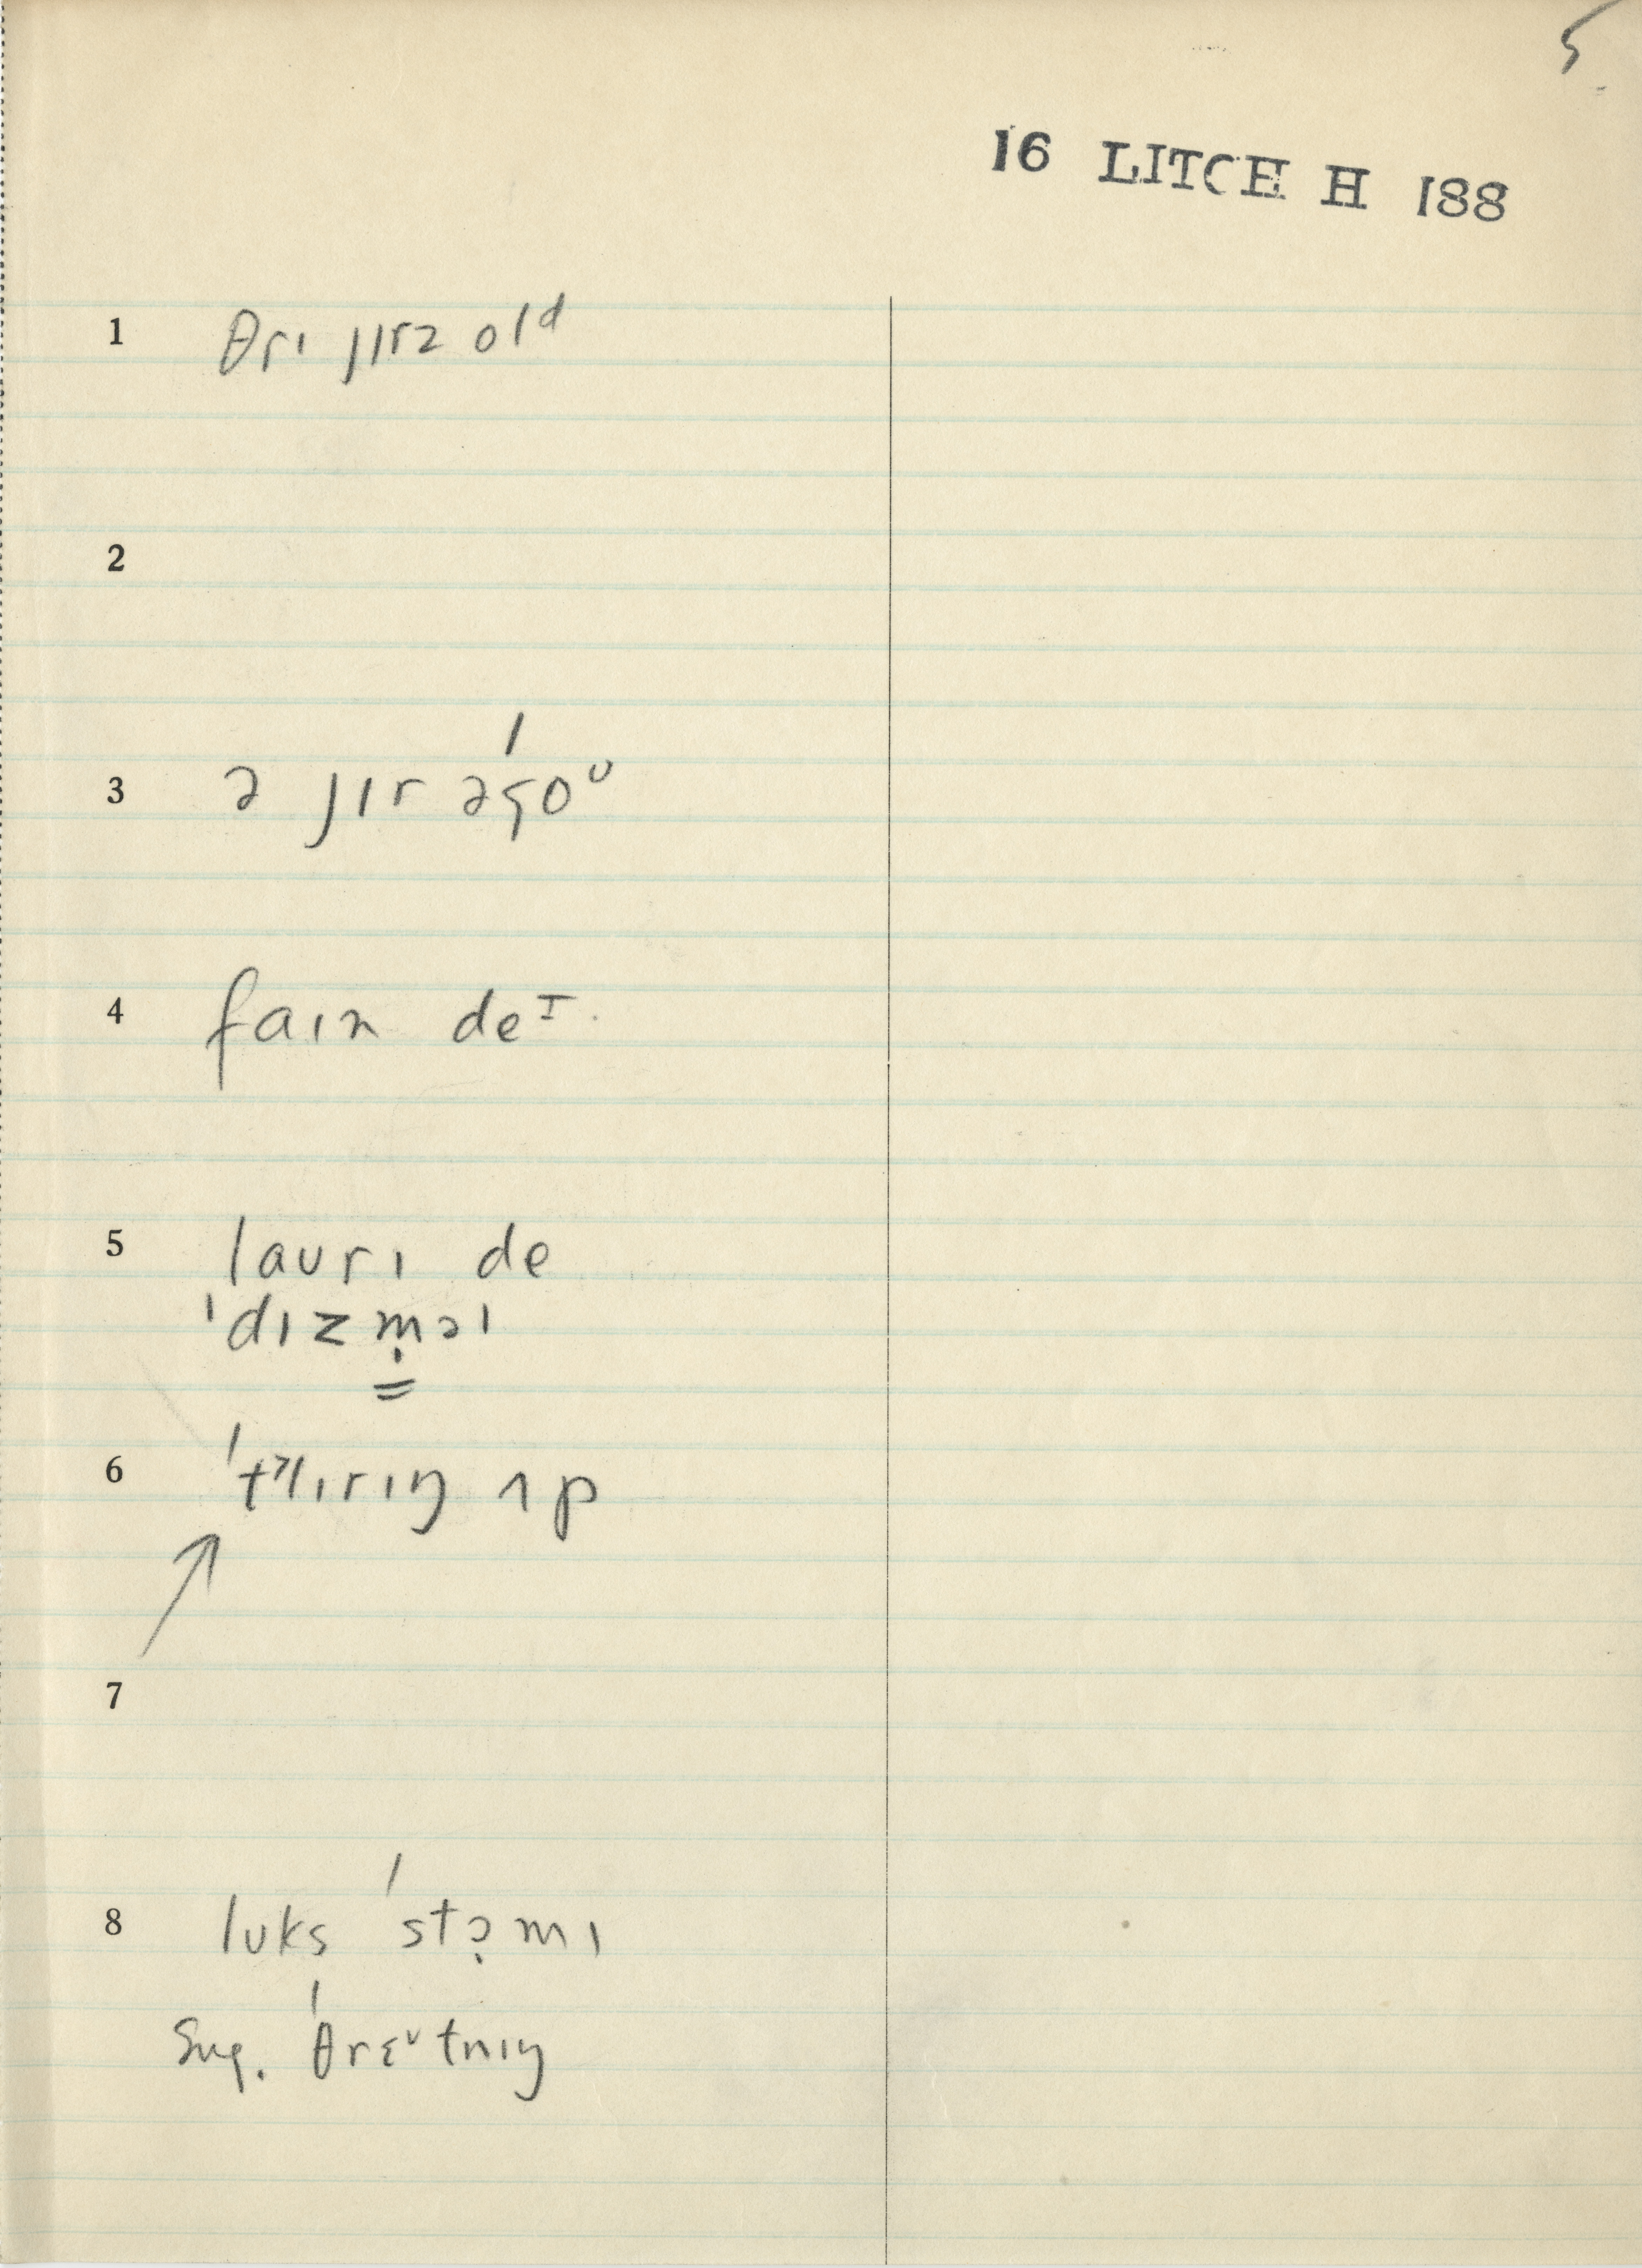 5
16 LITCH H 188
1 θrɪ jɪrz olᵈ
2
3 ə jɪr əˈɡ̧oᶷ
4 faɪn deᴵ.
5 laʊrɪ de
ˈdɪzṃəl
6 ˈtˠlɪrɪŋ ʌp
7
8 lʊks ˈstə̣mɪ
Sug. ˈθrɛᶷtnɪŋ